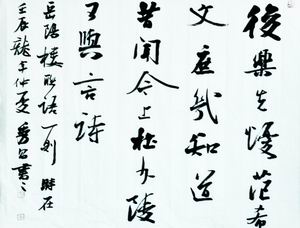 後樂先憂范希
文庶幾知道
昔聞今上杜少陵
可與言詩
岳陽樓聯語一則 時在
壬辰龍年仲夏書